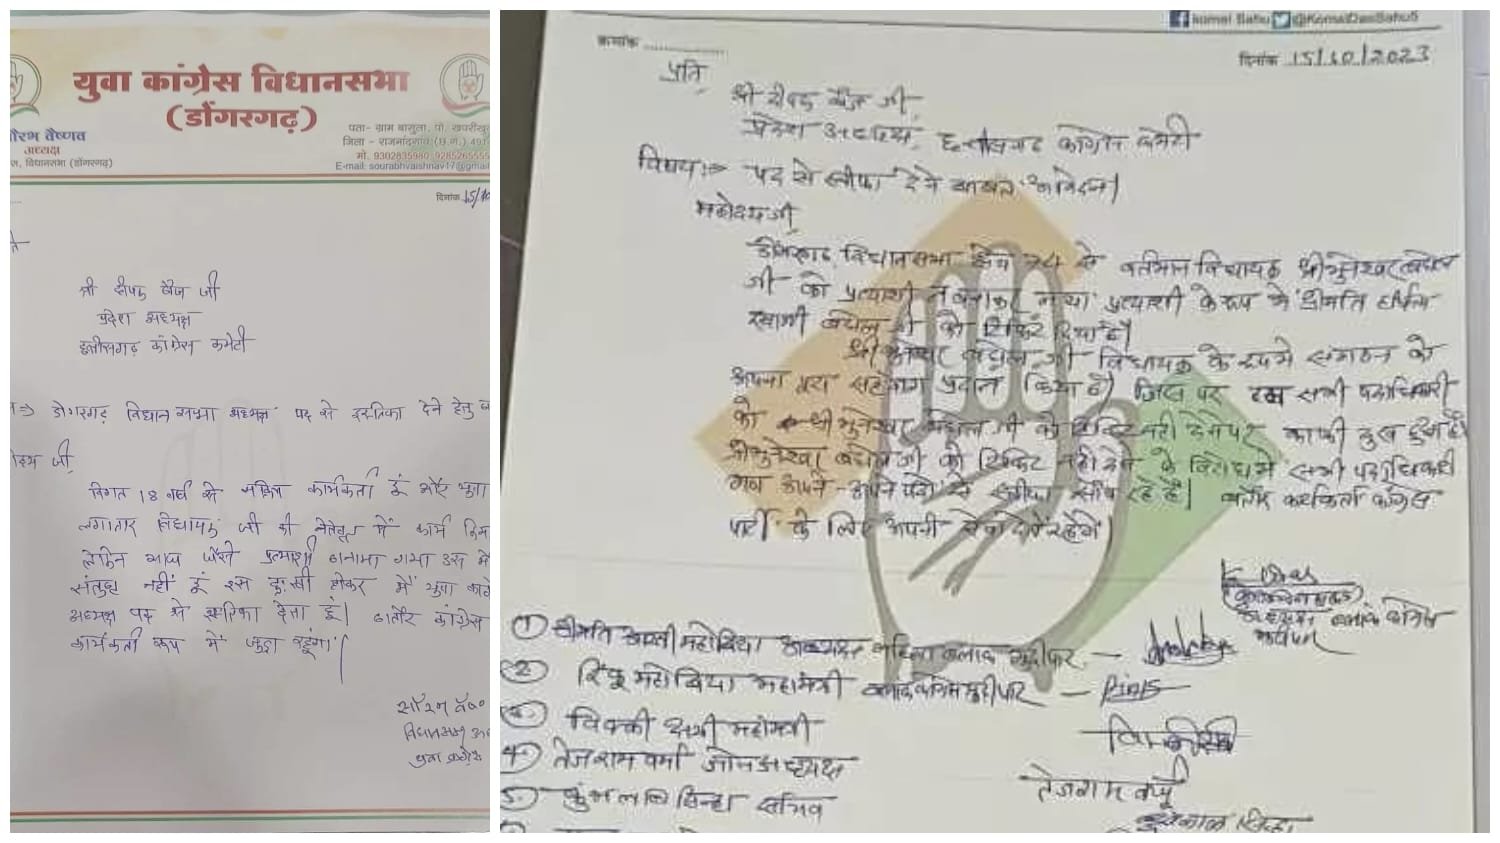 युवा कांग्रेस विधानसभा
(डोंगरगढ़)
रभ वैष्णव
अध्यक्ष
स, विधानसभा (डोंगरगढ़)
पता- ग्राम बागुला, पो. खपरीखु
जिला - राजनांदगांव (छ.ग.) 491
मो. 9302835980, 9285265555
E-mail: sourabhvaishnav17@gmail
दिनांक 15/10
श्री दीपक बैज जी
प्रदेश अध्यक्ष
छत्तीसगढ़ कांग्रेस कमेटी
डोंगरगढ़ विधानसभा अध्यक्ष पद से इस्तिफा देने हेतु
जी,
विगत 18 वर्ष से सक्रिय कार्यकर्ता हूं और युवा
लगातार विधायक जी की नेतृत्व में कार्य किया
लेकिन आज जैसे प्रत्याशी बनाया गया उस से
संतुष्ट नहीं हूं इस दुःखी होकर में युवा कांग्रे
अध्यक्ष पद से इस्तिफा देता हूं। बतौर कांग्रेस
कार्यकर्ता रूप में जुड़ा रहूंगा।
सौरभ वैष्ण
विधानसभा अ
युवा कांग्रेस
komal Sahu @KomalDasSahu5
क्रमांक ....................
दिनांक 15/10/2023
प्रति,
श्री दीपक बैज जी,
प्रदेश अध्यक्ष, छत्तीसगढ़ कांग्रेस कमेटी
विषय:- पद से स्तीफा देने बाबत् आवेदन।
महोदय जी,
डोंगरगढ़ विधानसभा क्षेत्र 74 से वर्तमान विधायक श्री भुनेश्वर बघेल
जी को प्रत्याशी न बनाकर नया प्रत्याशी के रूप में श्रीमति हर्षिता
स्वामी बघेल जी को टिकिट दिया है।
श्री भुनेश्वर बघेल जी विधायक के रूप में संगठन को
अपना पूरा सहयोग प्रदान किया है। जिस पर हम सभी पदाधिकारी
को श्री भुनेश्वर बघेल जी को टिकिट नही देने पर काफी दुख हुआ है।
श्री भुनेश्वर बघेल जी को टिकिट नही देने के विरोध में सभी पदाधिकारी
गण अपने-अपने पदो से स्तीफा सौंप रहे हैं। बतौर कार्यकर्ता कांग्रेस
पार्टी के लिए अपनी सेवा देते रहेंगे।
अध्यक्ष, ब्लाक कांग्रेस
① श्रीमति आरती महोबिया अध्यक्ष महिला ब्लाक मुढ़ीपार -
② रिंकू महोबिया महामंत्री ब्लाक कांग्रेस मुढ़ीपार -
③ विक्की महामंत्री
④ तेजराम वर्मा जोन अध्यक्ष तेजराम वर्मा
⑤ सिन्हा सचिव